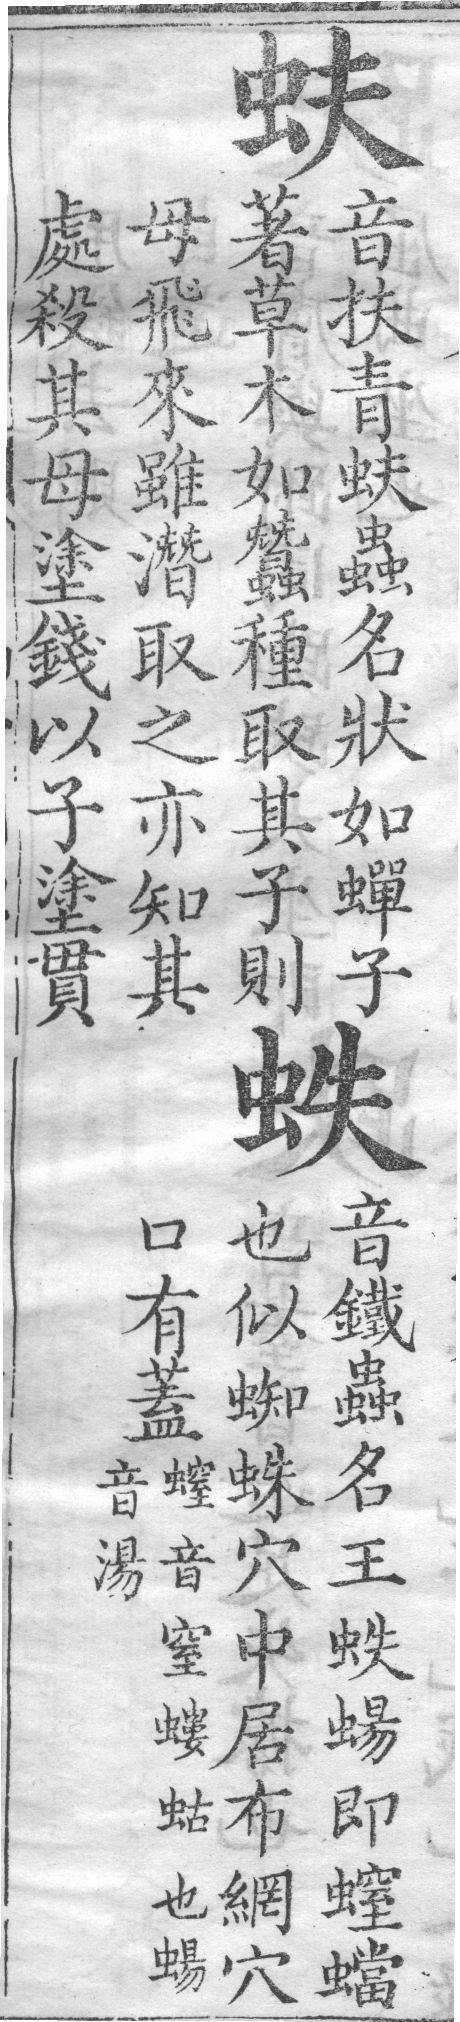 蚨
音扶青蚨蟲名狀如蟬子
著草木如蠶種取其子則
母飛來雖潛取之亦知其
處殺其母塗錢以子塗貫
蛈
音鐵蟲名王蛈蝪即螲蟷
也似蜘蛛穴中居布網穴
口有蓋
螲音窒螻蛄也蝪
音湯